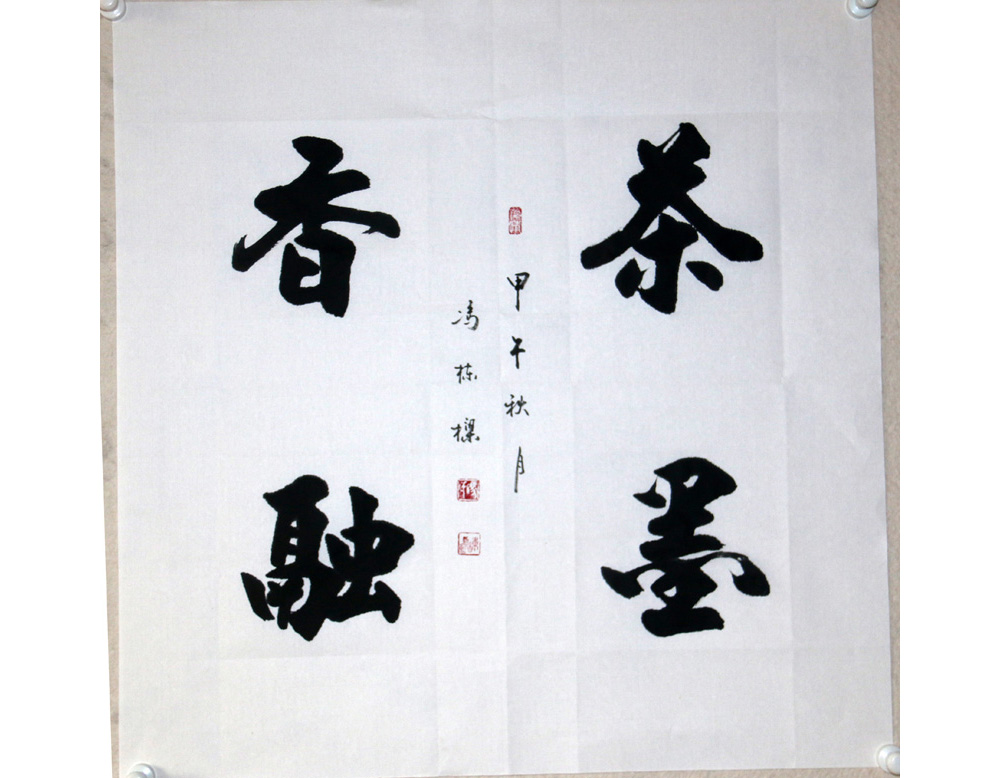 茶墨
香融
甲午秋月
冯栋樑